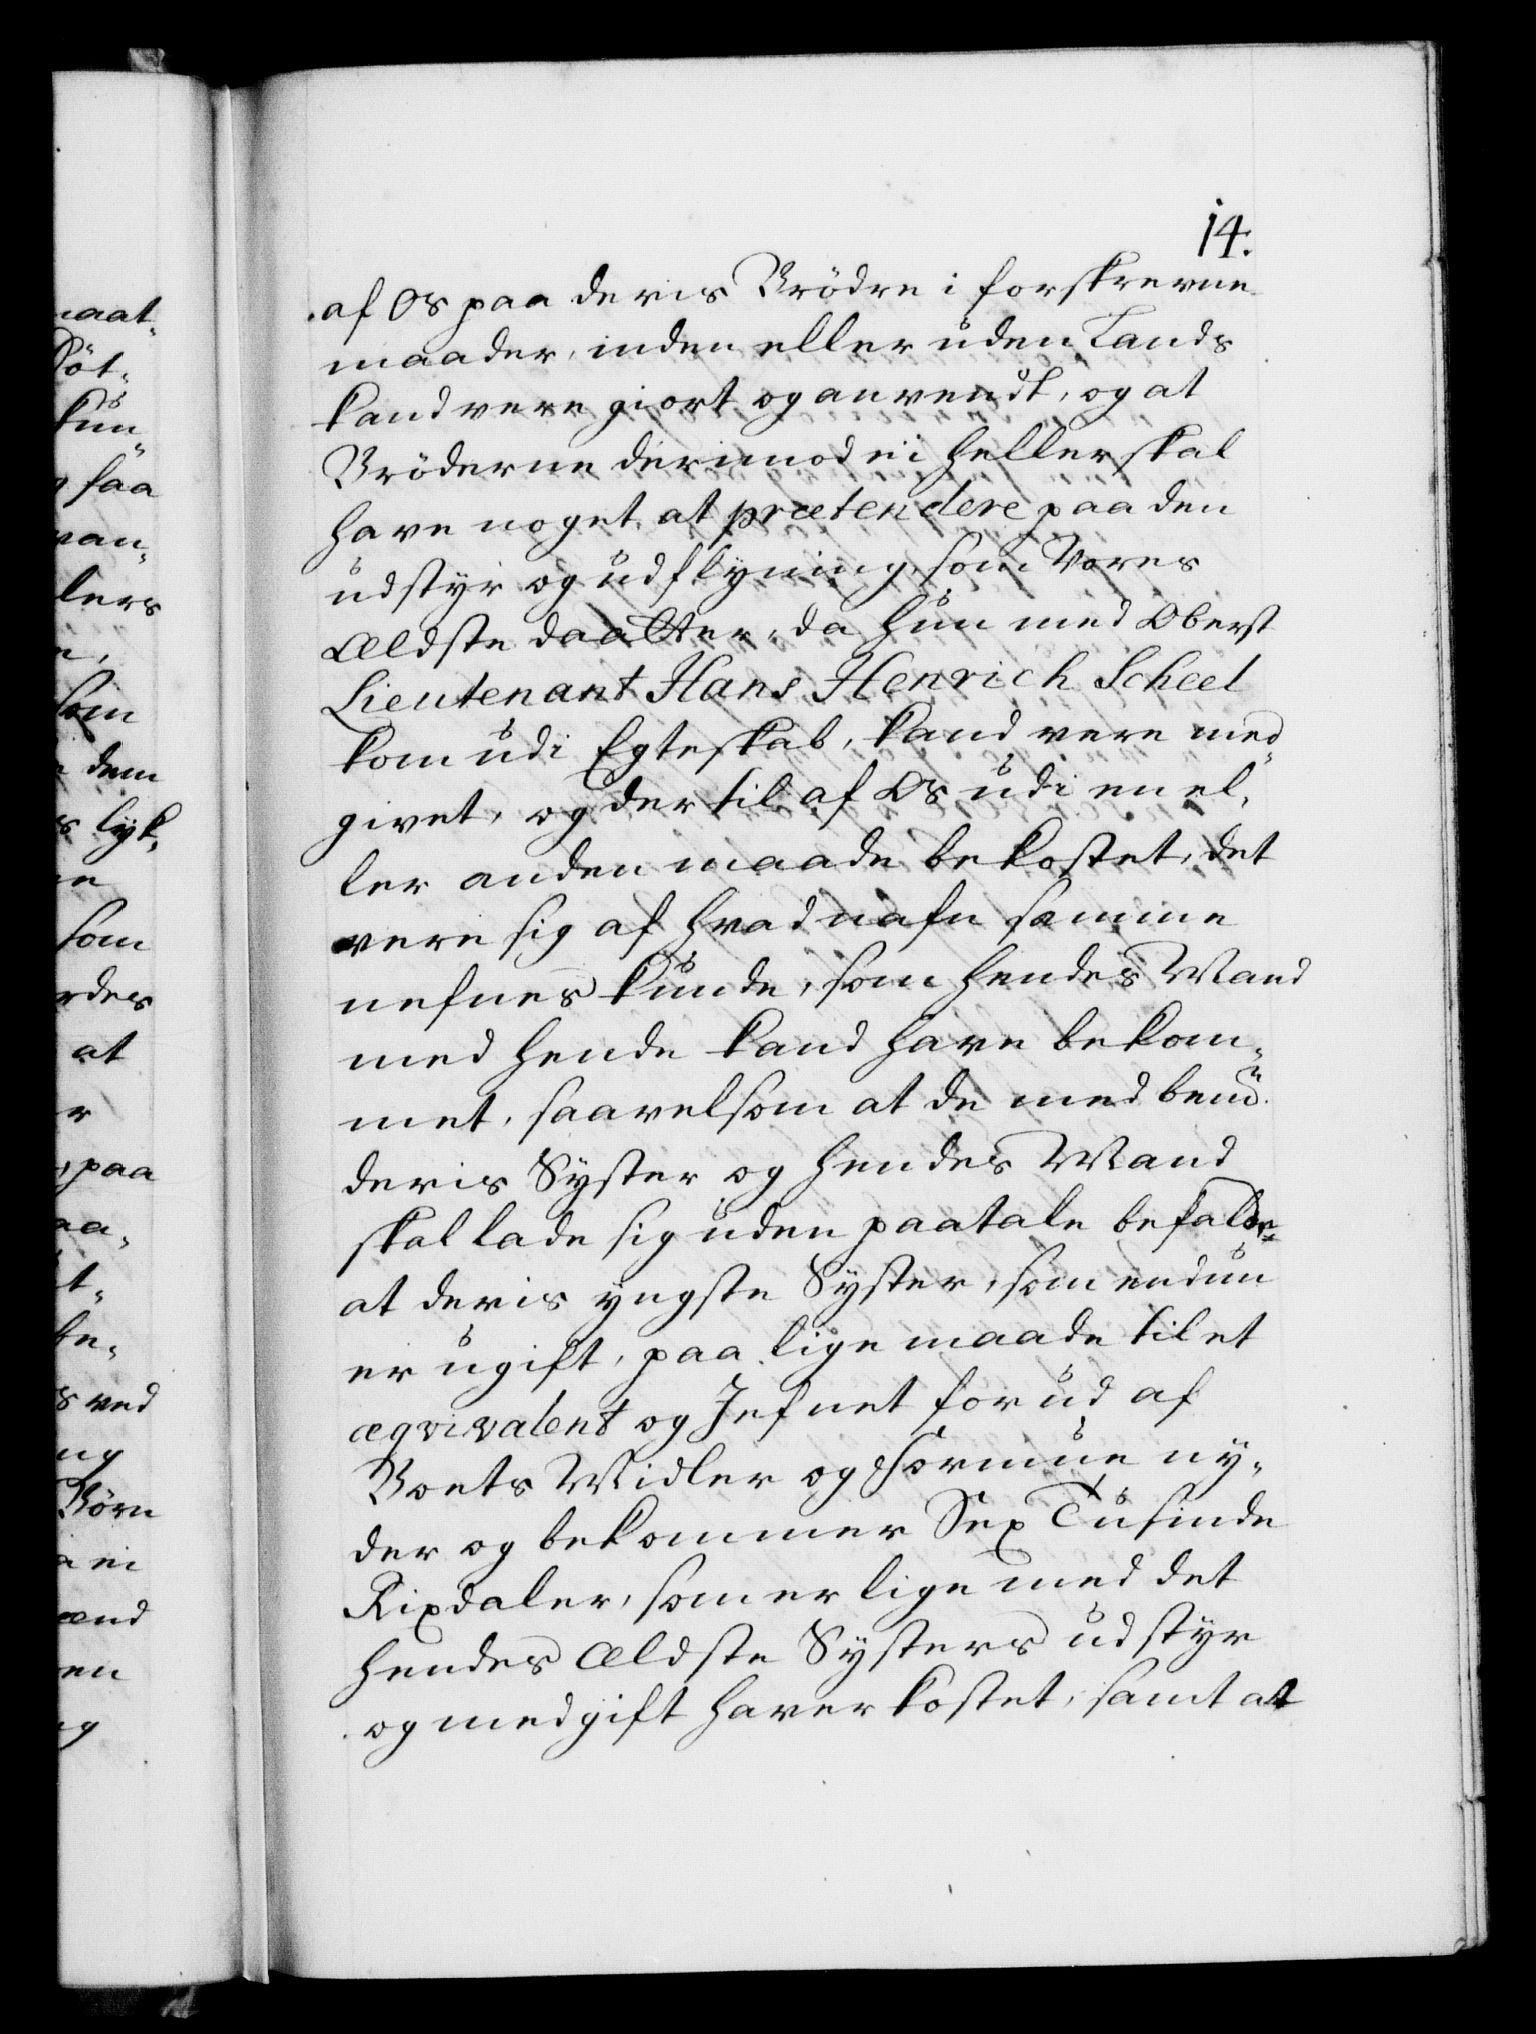 14.
af Os paa deris Brödre i forskrevne
maader, inden eller uden Lands
kand vere giort og anvendt, og at
Bröderne derimod ei heller skal
have noget at prætendere paa den
udstyr og udflyning, som Vores
Ældste daatter, da hun med Oberst
Lieutenant Hans Henrich Scheel
kom udi Egteskab, kand vere med
givet, og der til af Os udi en el,
ler anden maade bekostet, det
vere sig af hvad nafn samme
nefnes kunde, som hendes Mand
med hende kand have bekom,
met, saavelsom at de med bem.te
deris Syster og hendes Mand
skal lade sig uden paatale befalde
at deris yngste Syster, som endnu
er ugift, paa lige maade til et
æqvivalent og Jefnet forud af
Boets Midler og Formue ny,
der og bekommer Sex Tusinde
Rixdaler, som er lige med det
hendes Ældste Systers udstyr
og medgift haver kostet, samt at
naat,
Döt,
kun
g saa
van,
lers
e,
som
dem
s lyk,
ne
som
rdes
at
r
, paa
aa,
t,
be,
s ved
ng
Börn
a ei
ænd
en
og